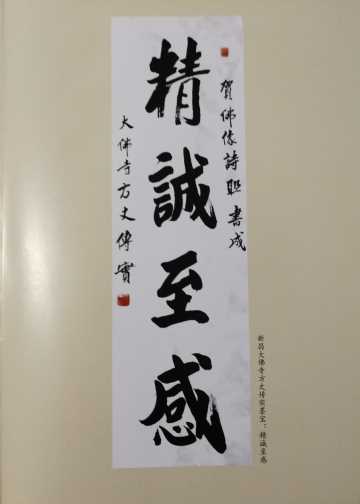 賀佛像詩聯書成
精誠至感
大佛寺方丈傳實
新昌大佛寺方丈传实墨宝：精诚至感